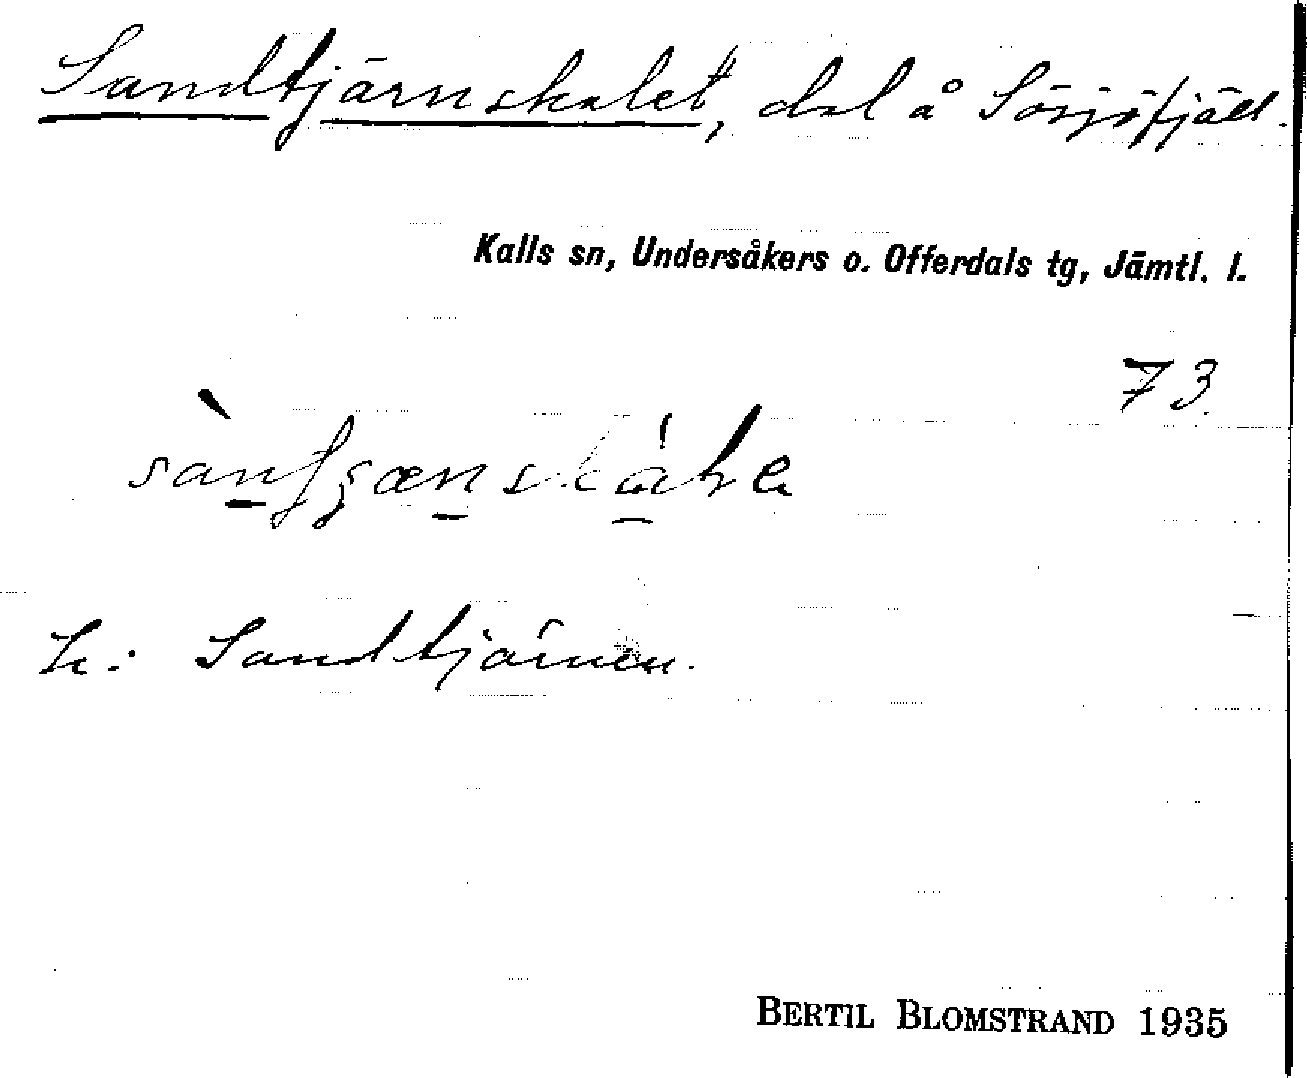 Sandtjärnskalet, dal å Sörsjöfjäll.
Kalls sn, Undersåkers o. Offerdals tg, Jämtl. l.
73
Sandtjärnen.
BERTIL BLOMSTRAND 1935